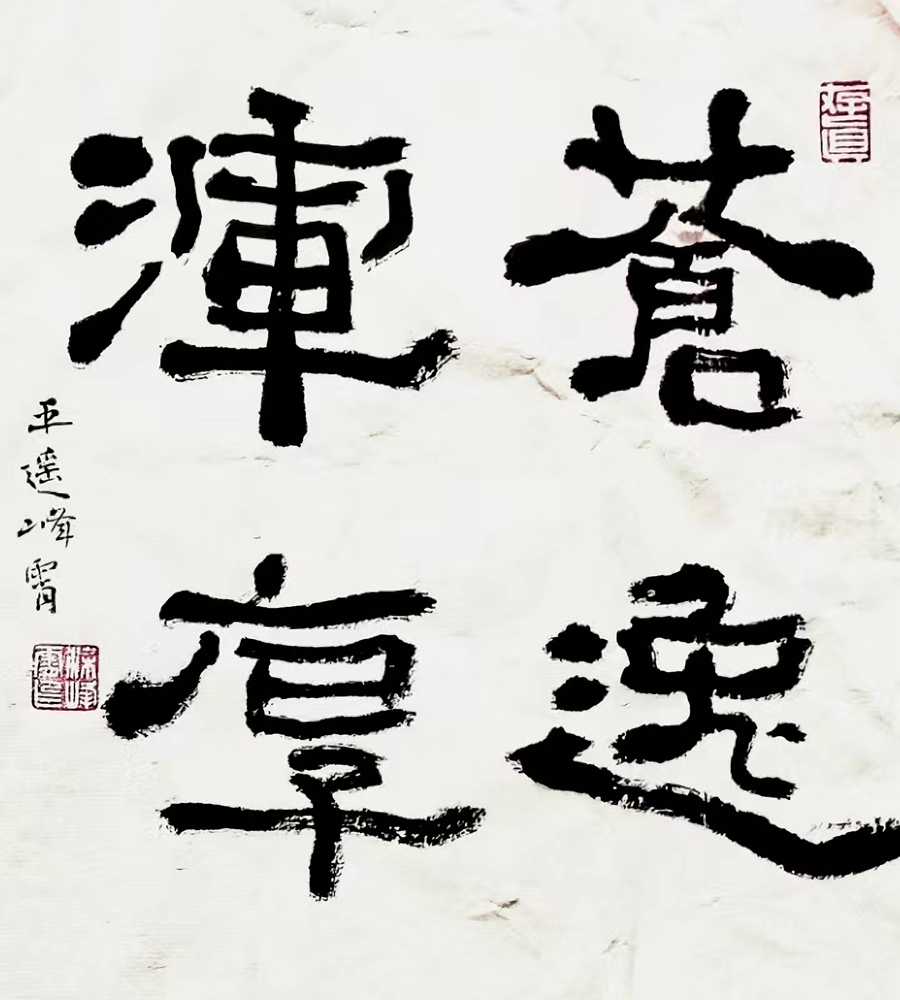 蒼逸
渾厚
平遥峰霄